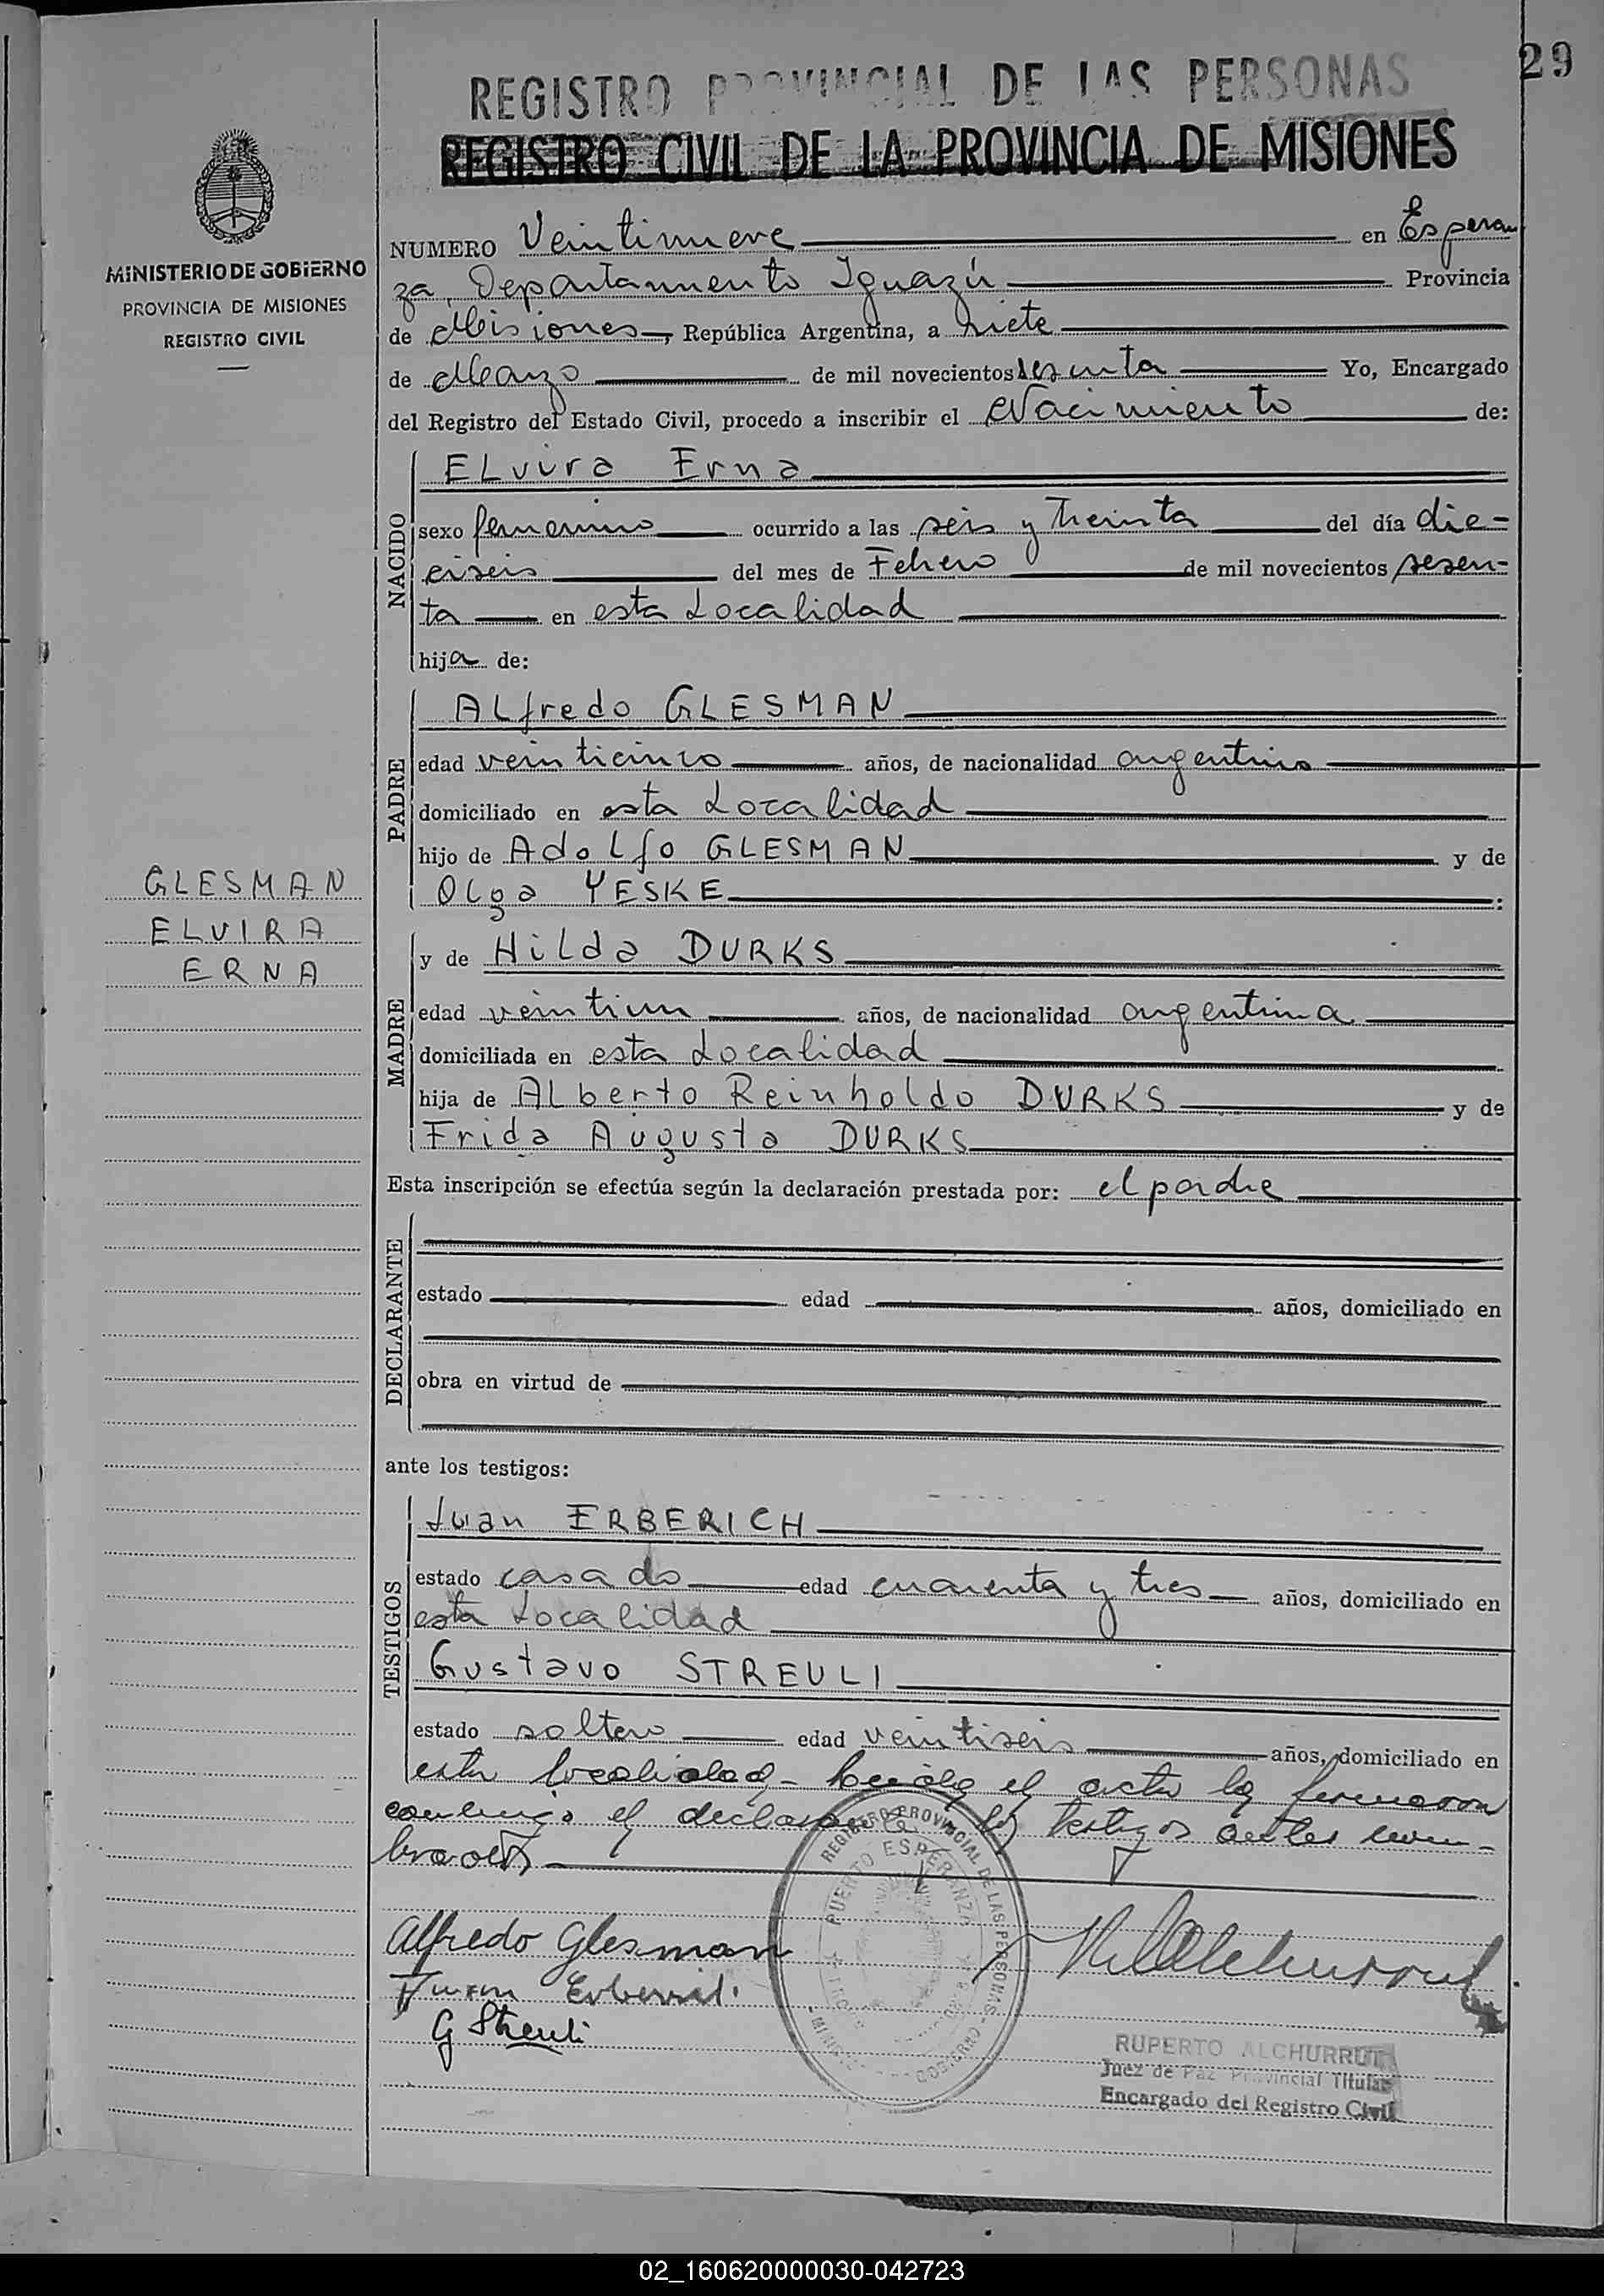 29
REGISTRO PROVINCIAL DE LAS PERSONAS
REGISTRO CIVIL DE LA PROVINCIA DE MISIONES
MINISTERIO DE GOBIERNO
PROVINCIA DE MISIONES
REGISTRO CIVIL
NUMERO Veintinueve en Esperan
za, Departamento Iguazú Provincia
de Misiones, República Argentina, a siete
de Marzo de mil novecientos sesenta Yo, Encargado
del Registro del Estado Civil, procedo a inscribir el Nacimiento de:
NACIDO
Elvira Erna
sexo femenino ocurrido a las seis y treinta del día die-
ciseis del mes de Febrero de mil novecientos sesen-
ta en esta Localidad
hija de:
PADRE
Alfredo GLESMAN
edad veinticinco años, de nacionalidad argentino
domiciliado en esta Localidad
hijo de Adolfo GLESMAN y de
Olga YESKE :
GLESMAN
ELVIRA
ERNA
MADRE
y de Hilda DURKS
edad veintiun años, de nacionalidad argentina
domiciliada en esta Localidad
hija de Alberto Reinholdo DURKS y de
Frida Augusta DURKS
Esta inscripción se efectúa según la declaración prestada por: el padre
DECLARANTE
estado edad años, domiciliado en
obra en virtud de
ante los testigos:
TESTIGOS
Juan ERBERICH
estado casado edad cuarenta y tres años, domiciliado en
esta Localidad
Gustavo STREULI
estado soltero edad veintiseis años, domiciliado en
esta localidad - Leída el acta la firmaron
conmigo el declarante y los testigos antes nom-
brados
REGISTRO PROVINCIAL DE LAS PERSONAS
PUERTO ESPERANZA
Alfredo Glesman
Juan Erberich
G Streuli
RUPERTO ALCHURRUT
Juez de Paz Provincial Titular
Encargado del Registro Civil
02_160620000030-042723